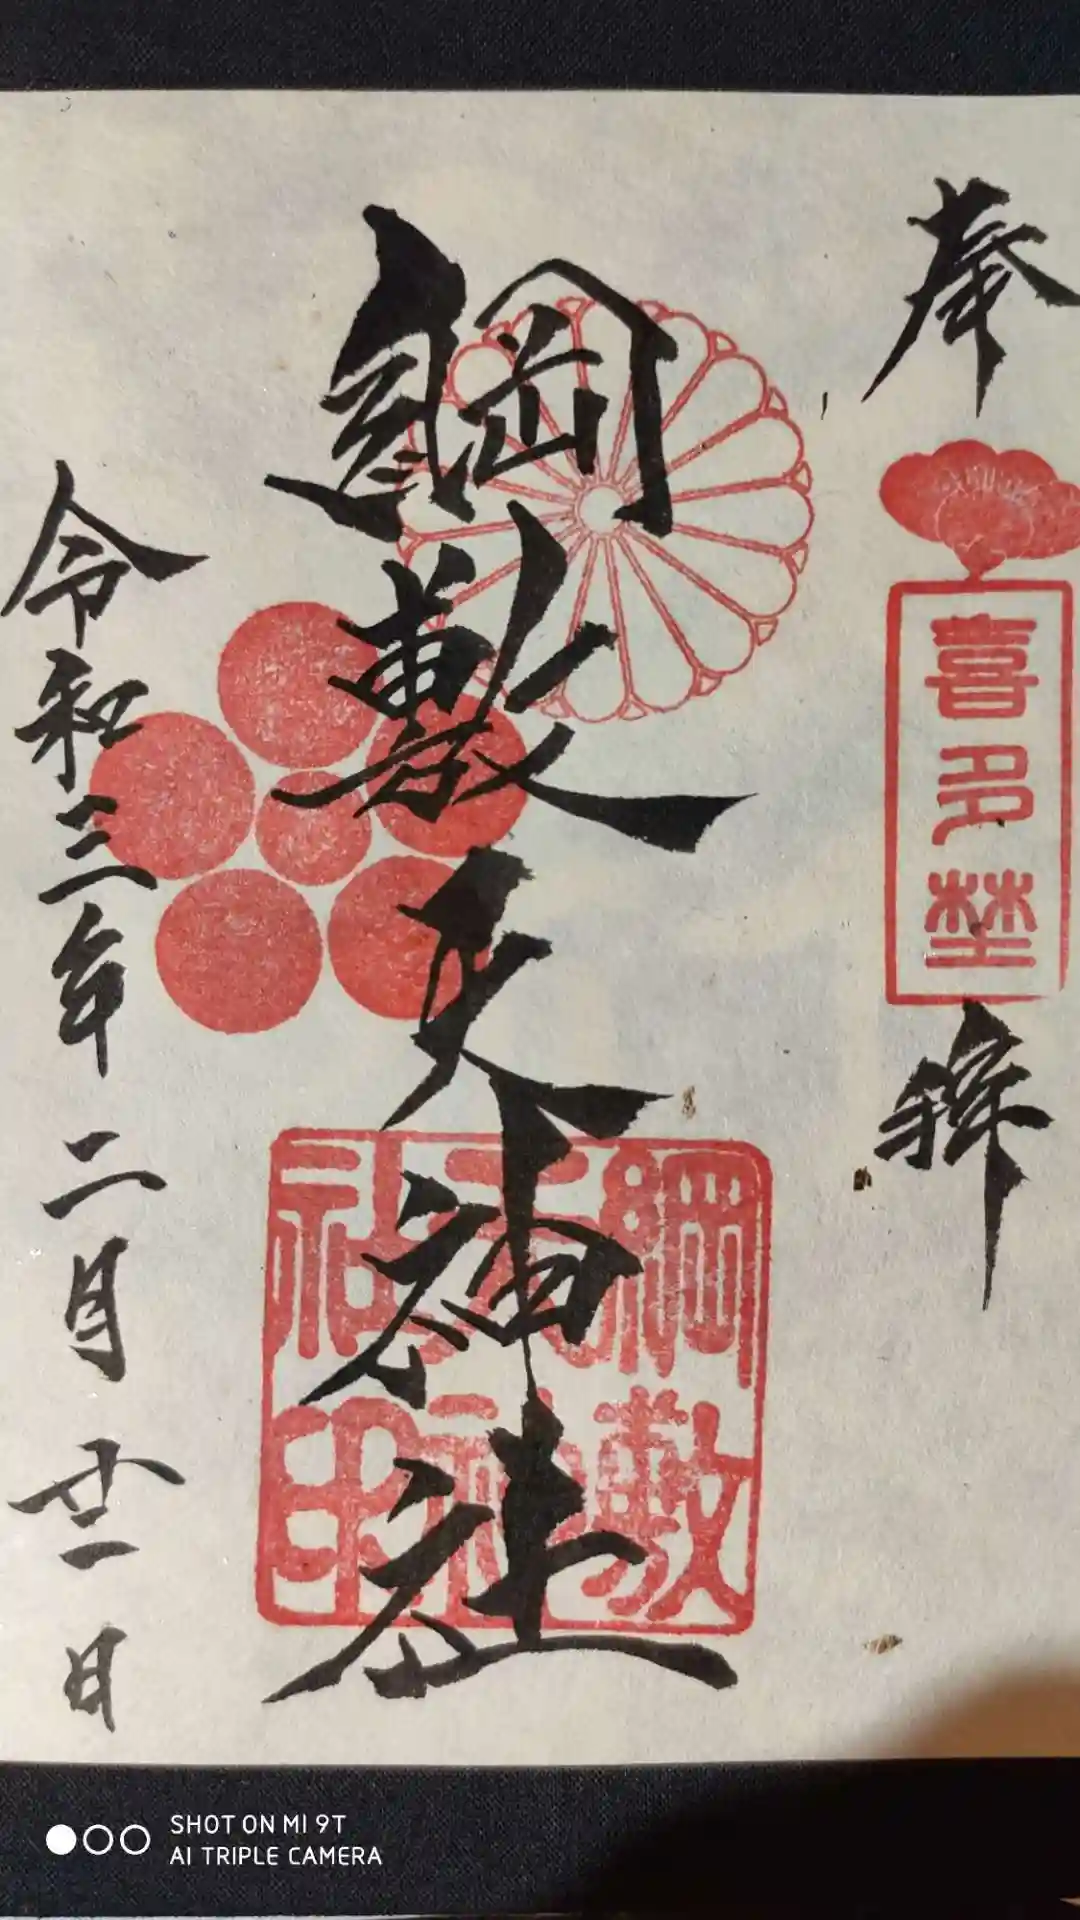 奉拝
喜多埜
綱敷天神社
綱敷
天神
社印
令和三年二月廿一日
SHOT ON MI 9T
AI TRIPLE CAMERA